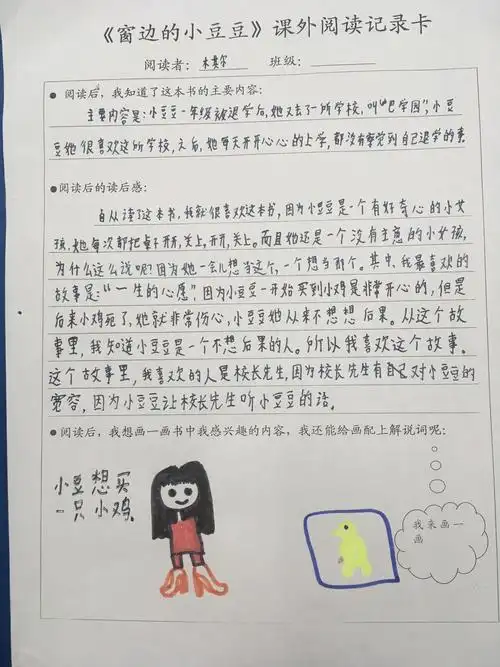 《窗边的小豆豆》课外阅读记录卡
阅读者： 班级：
阅读后，我知道了这本书的主要内容：
主要内容是：小豆豆一年级被退学后，她又去了一所学校，叫“巴学园”，小豆
豆她很喜欢这所学校，之后，她每天开开心心的上学，都没有察觉到自己退学的事
阅读后的读后感：
自从读了这本书，我就很喜欢这本书，因为小豆豆是一个有好奇心的小女
孩，她每次都把桌子开开，关上，开开，关上。而且她还是一个没有主意的小女孩，
为什么这么说呢？因为她一会儿想当这个，一个想当那个。其中，我最喜欢的
故事是：“一生的心愿”因为小豆豆一开始买到小鸡是非常开心的，但是
后来小鸡死了，她就非常伤心，小豆豆她从来不想想后果。从这个故
事里，我知道小豆豆是一个不想后果的人。所以我喜欢这个故事。
这个故事里，我喜欢的人是校长先生，因为校长先生有自己对小豆豆的
宽容，因为小豆豆让校长先生听小豆豆的话。
阅读后，我想画一画书中我感兴趣的内容，我还能给画配上解说词呢：
小豆想买
一只小鸡。
我来画一
画